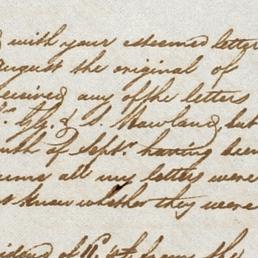 with your esteemed letter
August the original of
received any of the letters
& S. Howland, but
of Septr. having been
all my letters were
know whether they were
the